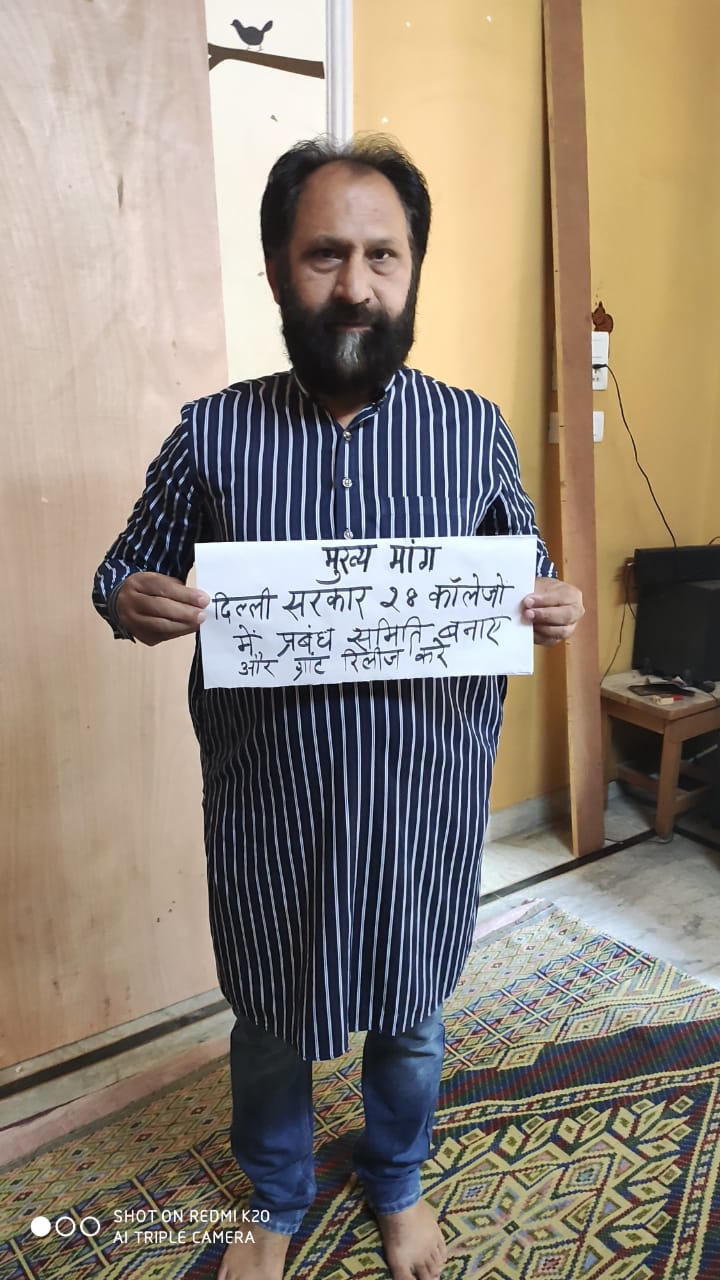 मुख्य मांग
दिल्ली सरकार २८ कॉलेजो
में प्रबंध समिति बनाए
और ग्रांट रिलीज करे
SHOT ON REDMI K20
AI TRIPLE CAMERA